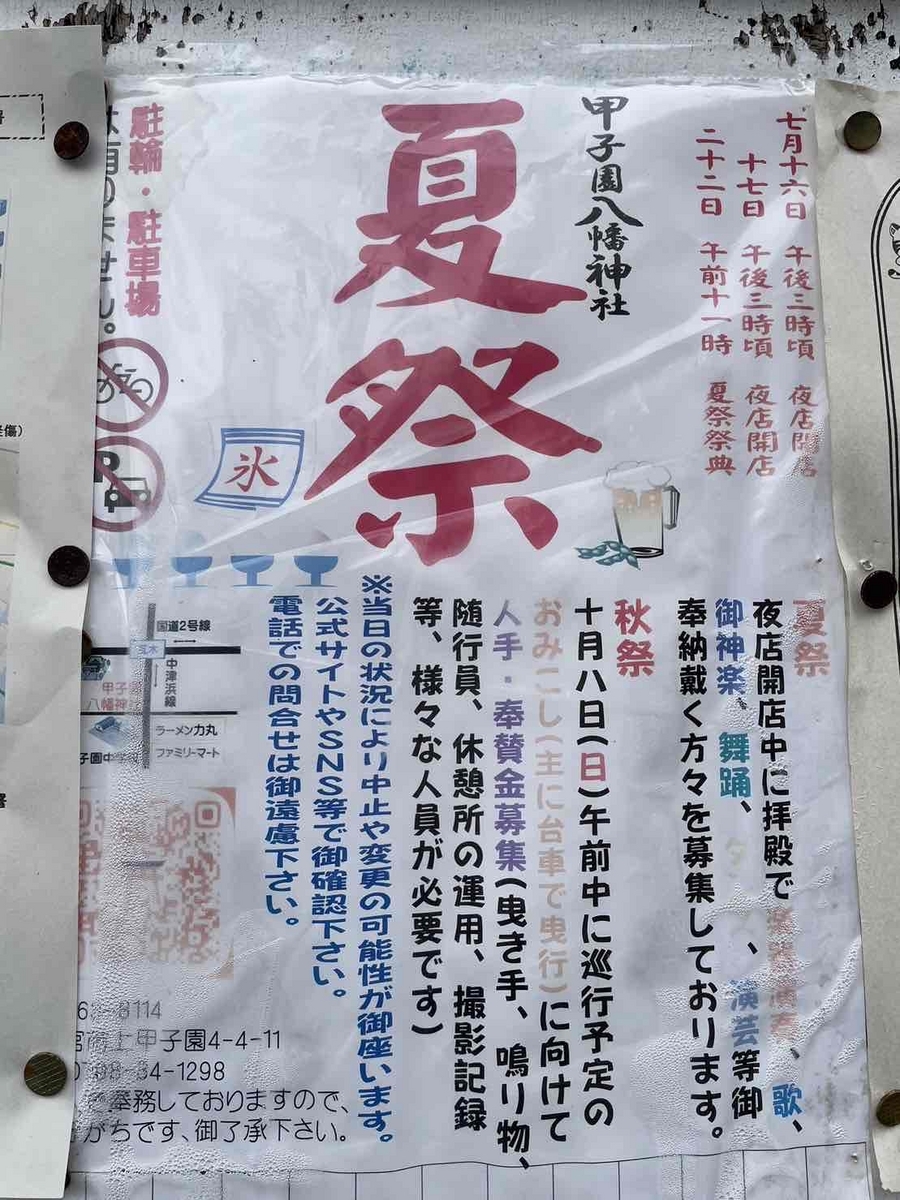 七月十六日 午後三時頃 夜店開店
十七日 午後三時頃 夜店開店
二十二日 午前十一時 夏祭祭典
甲子園八幡神社
夏祭
氷
駐輪・駐車場
ません。
夏祭
夜店開店中に拝殿で楽器演奏、歌、
御神楽、舞踊、
、演芸等御
奉納戴く方々を募集しております。
秋祭
十月八日(日)午前中に巡行予定の
おみこし(主に台車で曳行)に向けて
人手・奉賛金募集(曳き手、鳴り物、
随行員、休憩所の運用、撮影記録
等、様々な人員が必要です)
※当日の状況により中止や変更の可能性が御座います。
公式サイトやSNS等で御確認下さい。
電話での問合せは御遠慮下さい。
国道2号線
中津浜線
甲子
八幡神
ラーメン力丸
ファミリーマート
子園中学
8114
上甲子園4-4-11
98-34-1298
奉務しておりますので、
がちです、御了承下さい。